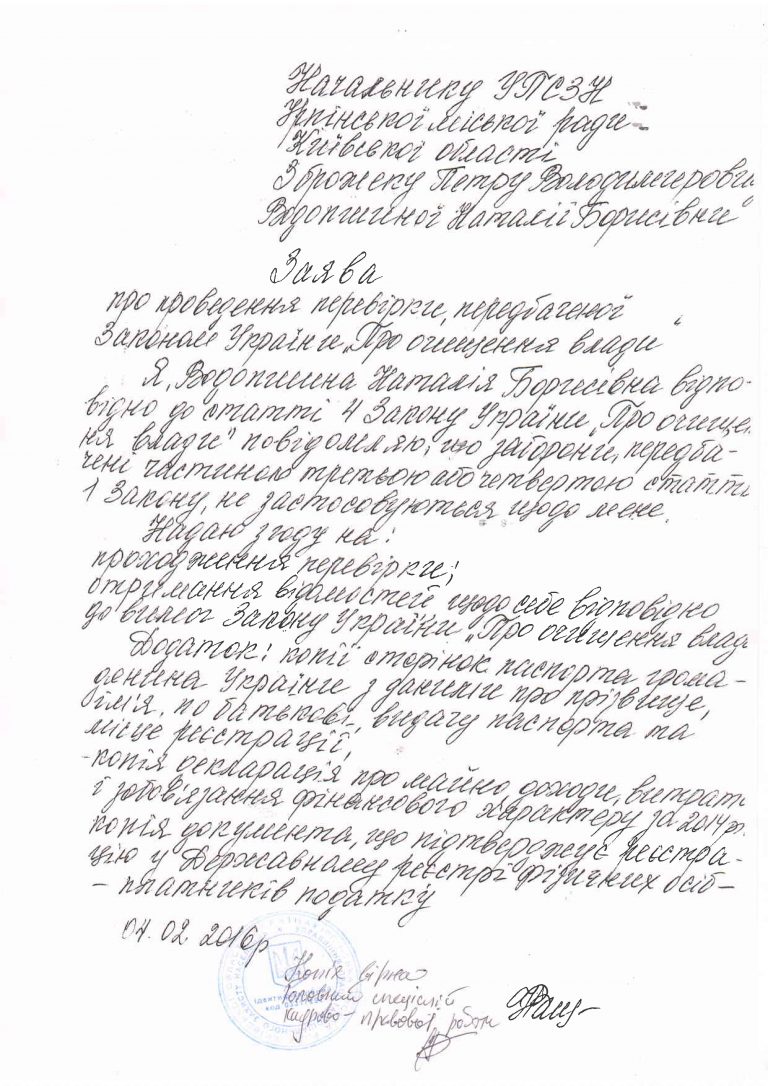 Начальнику УПСЗН
Ірпінської міської ради
Київської області
Зброжеку Петру Володимирови
Водопшиної Наталії Борисівни
Заява
про проведення перевірки, передбаченої
Законом України „Про очищення влади"
Я, Водопшина Наталія Борисівна відпо-
відно до статті 4 Закону України „Про очище
ня влади" повідомляю, що заборони, передба-
чені частиною третьою або четвертою статті
1 Закону, не застосовуються щодо мене.
Надаю згоду на:
проходження перевірки;
отримання відомостей щодо себе відповідно
до вимог Закону України „Про очищення влад
Додаток: копії сторінок паспорта грома-
дянина України з даними про прізвище,
ім'я, по батькові, видачу паспорта та
місце реєстрації,
-копія декларація про майно, доходи, витрати
і зобов'язання фінансового характеру за 2014 р.
копія документа, що підтверджує реєстра-
цію у Державному реєстрі фізичних осіб-
- платників податку
04. 02 2016р
Копія вірна
Головний спеціаліст
кадрово-правової роботи